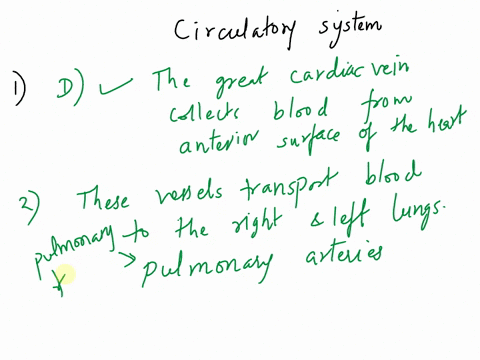 Circulatory system
1) D) ✓ The great cardiac vein
collects blood from
anterior surface of the heart
2) These vessels transport blood
to the right & left lungs.
pulmonary
→ pulmonary arteries